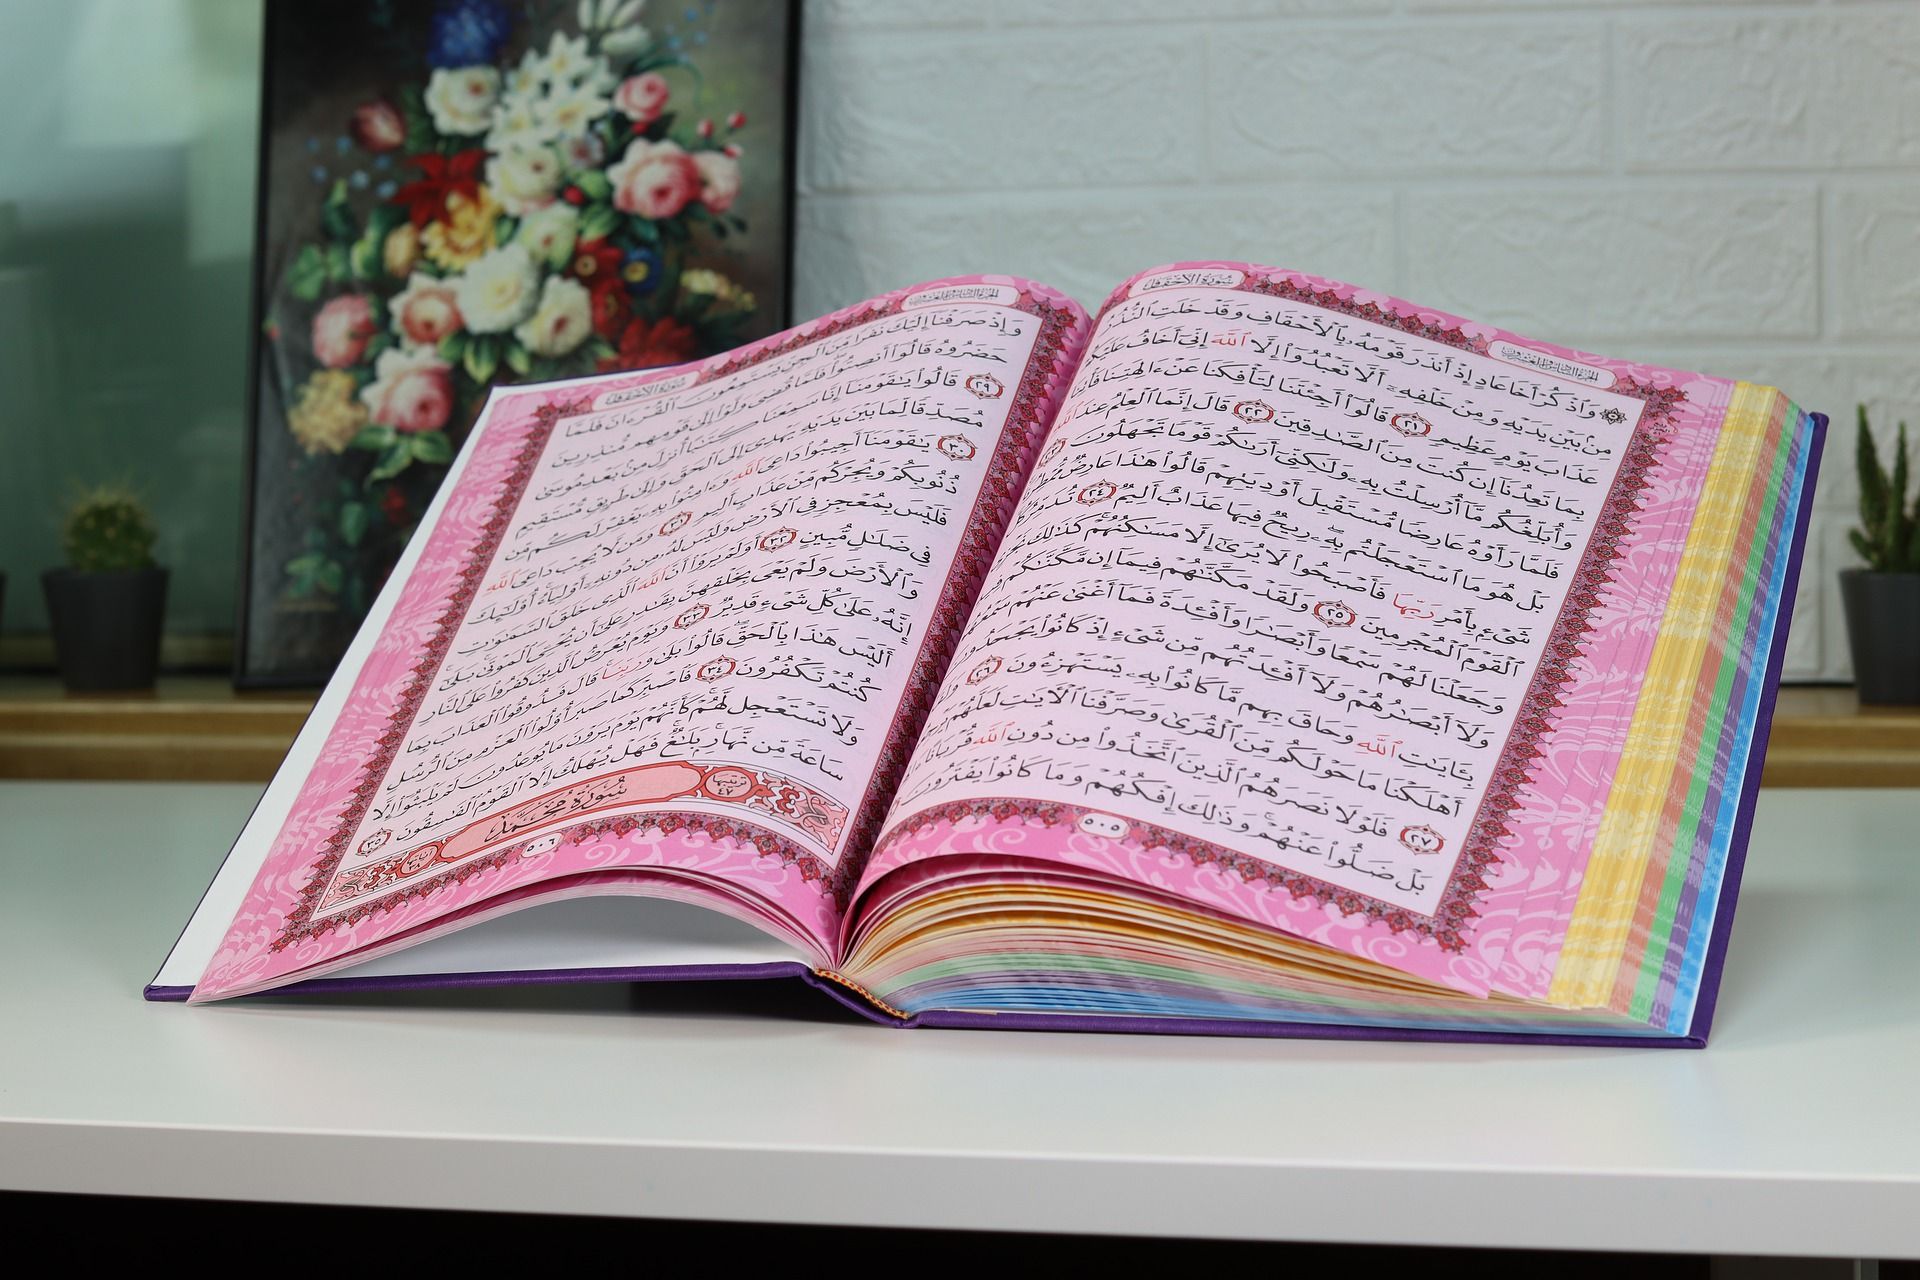 سُورَةُ الأَحْقَافِ
الجزء السادس والعشرون
۞ وَٱذْكُرْ أَخَا عَادٍ إِذْ أَنذَرَ قَوْمَهُۥ بِٱلْأَحْقَافِ وَقَدْ خَلَتِ ٱلنُّذُرُ
مِنۢ بَيْنِ يَدَيْهِ وَمِنْ خَلْفِهِۦٓ أَلَّا تَعْبُدُوٓا۟ إِلَّا ٱللَّهَ إِنِّىٓ أَخَافُ عَلَيْكُمْ
عَذَابَ يَوْمٍ عَظِيمٍ ٢١ قَالُوٓا۟ أَجِئْتَنَا لِتَأْفِكَنَا عَنْ ءَالِهَتِنَا فَأْتِنَا
بِمَا تَعِدُنَآ إِن كُنتَ مِنَ ٱلصَّٰدِقِينَ ٢٢ قَالَ إِنَّمَا ٱلْعِلْمُ عِندَ ٱللَّهِ
وَأُبَلِّغُكُم مَّآ أُرْسِلْتُ بِهِۦ وَلَٰكِنِّىٓ أَرَىٰكُمْ قَوْمًا تَجْهَلُونَ ٢٣
فَلَمَّا رَأَوْهُ عَارِضًا مُّسْتَقْبِلَ أَوْدِيَتِهِمْ قَالُوا۟ هَٰذَا عَارِضٌ مُّمْطِرُنَا
بَلْ هُوَ مَا ٱسْتَعْجَلْتُم بِهِۦ رِيحٌ فِيهَا عَذَابٌ أَلِيمٌ ٢٤ تُدَمِّرُ
شَىْءٍۭ بِأَمْرِ رَبِّهَا فَأَصْبَحُوا۟ لَا يُرَىٰٓ إِلَّا مَسَٰكِنُهُمْ كَذَٰلِكَ
ٱلْقَوْمَ ٱلْمُجْرِمِينَ ٢٥ وَلَقَدْ مَكَّنَّٰهُمْ فِيمَآ إِن مَّكَّنَّٰكُمْ
وَجَعَلْنَا لَهُمْ سَمْعًا وَأَبْصَٰرًا وَأَفْـِٔدَةً فَمَآ أَغْنَىٰ عَنْهُمْ سَمْعُهُمْ
وَلَآ أَبْصَٰرُهُمْ وَلَآ أَفْـِٔدَتُهُم مِّن شَىْءٍ إِذْ كَانُوا۟ يَجْحَدُونَ
بِـَٔايَٰتِ ٱللَّهِ وَحَاقَ بِهِم مَّا كَانُوا۟ بِهِۦ يَسْتَهْزِءُونَ ٢٦
أَهْلَكْنَا مَا حَوْلَكُم مِّنَ ٱلْقُرَىٰ وَصَرَّفْنَا ٱلْءَايَٰتِ لَعَلَّهُمْ
٢٧ فَلَوْلَا نَصَرَهُمُ ٱلَّذِينَ ٱتَّخَذُوا۟ مِن دُونِ ٱللَّهِ قُرْبَانًا
بَلْ ضَلُّوا۟ عَنْهُمْ وَذَٰلِكَ إِفْكُهُمْ وَمَا كَانُوا۟ يَفْتَرُونَ
٥٠٥
الجزء السادس والعشرون
سُورَةُ الأَحْقَافِ
وَإِذْ صَرَفْنَآ إِلَيْكَ نَفَرًا مِّنَ ٱلْجِنِّ يَسْتَمِعُونَ ٱلْقُرْءَانَ فَلَمَّا
حَضَرُوهُ قَالُوٓا۟ أَنصِتُوا۟ فَلَمَّا قُضِىَ وَلَّوْا۟ إِلَىٰ قَوْمِهِم مُّنذِرِينَ
٢٩ قَالُوا۟ يَٰقَوْمَنَآ إِنَّا سَمِعْنَا كِتَٰبًا أُنزِلَ مِنۢ بَعْدِ مُوسَىٰ
مُصَدِّقًا لِّمَا بَيْنَ يَدَيْهِ يَهْدِىٓ إِلَى ٱلْحَقِّ وَإِلَىٰ طَرِيقٍ مُّسْتَقِيمٍ
٣٠ يَٰقَوْمَنَآ أَجِيبُوا۟ دَاعِىَ ٱللَّهِ وَءَامِنُوا۟ بِهِۦ يَغْفِرْ لَكُم مِّن
ذُنُوبِكُمْ وَيُجِرْكُم مِّنْ عَذَابٍ أَلِيمٍ ٣١ وَمَن لَّا يُجِبْ دَاعِىَ ٱللَّهِ
فَلَيْسَ بِمُعْجِزٍ فِى ٱلْأَرْضِ وَلَيْسَ لَهُۥ مِن دُونِهِۦٓ أَوْلِيَآءُ أُو۟لَٰٓئِكَ
فِى ضَلَٰلٍ مُّبِينٍ ٣٢ أَوَلَمْ يَرَوْا۟ أَنَّ ٱللَّهَ ٱلَّذِى خَلَقَ ٱلسَّمَٰوَٰتِ
وَٱلْأَرْضَ وَلَمْ يَعْىَ بِخَلْقِهِنَّ بِقَٰدِرٍ عَلَىٰٓ أَن يُحْـِۧىَ ٱلْمَوْتَىٰ بَلَىٰٓ
إِنَّهُۥ عَلَىٰ كُلِّ شَىْءٍ قَدِيرٌ ٣٣ وَيَوْمَ يُعْرَضُ ٱلَّذِينَ كَفَرُوا۟ عَلَى ٱلنَّارِ
أَلَيْسَ هَٰذَا بِٱلْحَقِّ قَالُوا۟ بَلَىٰ وَرَبِّنَا قَالَ فَذُوقُوا۟ ٱلْعَذَابَ بِمَا
كُنتُمْ تَكْفُرُونَ ٣٤ فَٱصْبِرْ كَمَا صَبَرَ أُو۟لُوا۟ ٱلْعَزْمِ مِنَ ٱلرُّسُلِ
وَلَا تَسْتَعْجِل لَّهُمْ كَأَنَّهُمْ يَوْمَ يَرَوْنَ مَا يُوعَدُونَ لَمْ يَلْبَثُوٓا۟ إِلَّا
سَاعَةً مِّن نَّهَارٍۭ بَلَٰغٌ فَهَلْ يُهْلَكُ إِلَّا ٱلْقَوْمُ ٱلْفَٰسِقُونَ ٣٥
ترتيبها ٤٧ سُورَةُ مُحَمَّدٍ آياتها ٣٨
٥٠٦